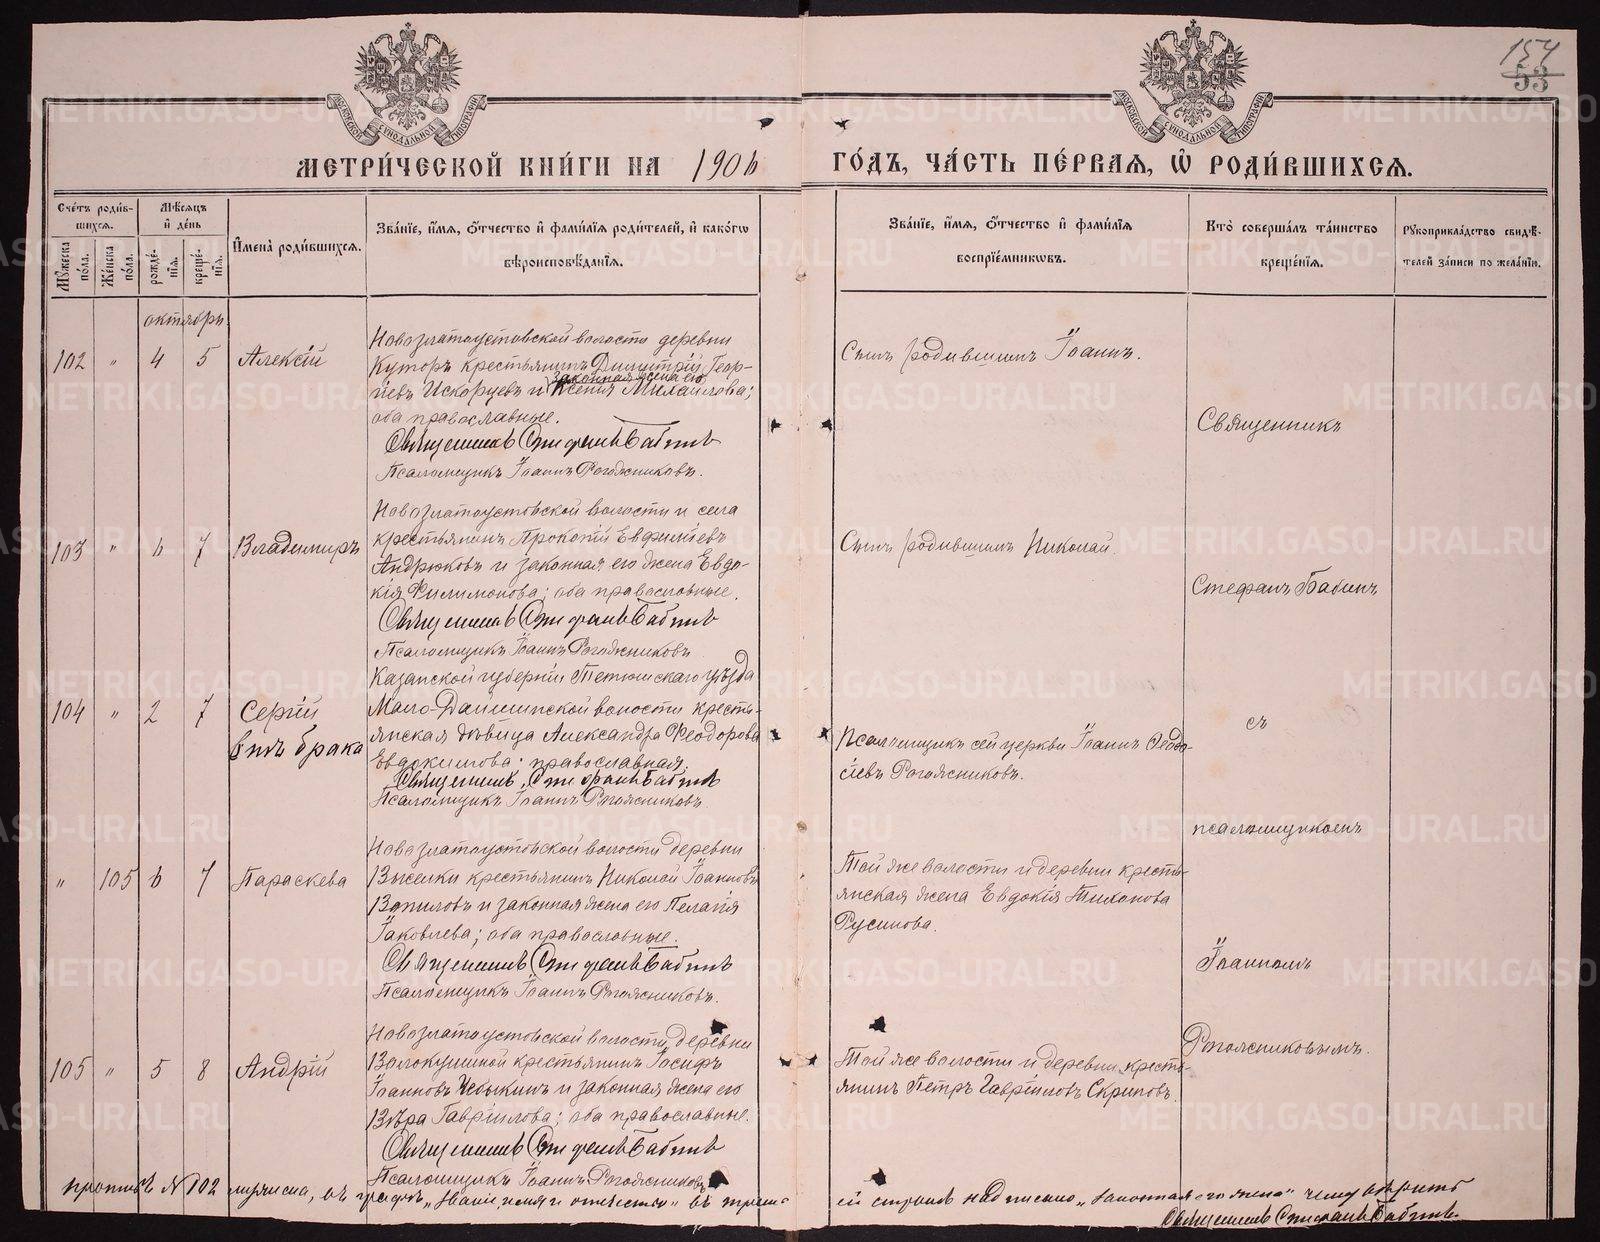 154
53
МОСКОВСКОЙ СУНОДАЛЬНОЙ ТИПОГРАФІИ
МОСКОВСКОЙ СУНОДАЛЬНОЙ ТИПОГРАФІИ
МЕТРИ́ЧЕСКОЙ КНИ́ГИ НА 1906 ГО́ДЪ, ЧА́СТЬ ПЕ́РВАѦ, Ѡ҆ РОДИ́ВШИХСѦ.
Сче́тъ роди́в-
шихся.
Мꙋ́жеска по́ла.
Же́нска по́ла.
Мѣ́сѧцъ
и҆ де́нь
рожде́-
нїѧ.
креще́-
нїѧ.
И҆мена̀ роди́вшихсѧ.
Зва́нїе, и҆́мѧ, ѻ҆́тчество и҆ фами́лїѧ роди́телей, и҆ како́гѡ
вѣроисповѣ́данїѧ.
Зва́нїе, и҆́мѧ, ѻ҆́тчество и҆ фами́лїѧ
воспрїе́мникѡвъ.
Кто̀ соверша́лъ та́инство
креще́нїѧ.
Рꙋкоприкла́дство свидѣ́-
телей за́писи по жела́нїю.
октябрь.
102 " 4 5 Алексій
Новозлатоустовской волости деревни
Куторъ крестьянинъ Димитрій Геор-
гіевъ Искорцевъ и законная жена его Ксенія Михайлова;
оба православные.
Священникъ Стефанъ Бабинъ
Псаломщикъ Іоаннъ Рогожниковъ.
Сынъ родившимъ Іоаннъ.
Священникъ
103 " 6 7 Владимиръ
Новозлатоустовской волости и села
крестьянинъ Прокопій Евфиміевъ
Андрюковъ и законная его жена Евдо-
кія Филимонова; оба православные.
Священникъ Стефанъ Бабинъ
Псаломщикъ Іоаннъ Рогожниковъ
Сынъ родившимъ Николай
Стефанъ Бабинъ
104 " 2 7 Сергій
внѣ брака
Казанской губерніи Тетюшскаго уѣзда
волости кресть-
янская дѣвица Александра Ѳеодорова
Евдокимова; православная.
Священникъ Стефанъ Бабинъ
Псаломщикъ Іоаннъ Рогожниковъ.
Псаломщикъ сей церкви Іоаннъ
Рогожниковъ.
съ
псаломщикомъ
" 105 6 7 Параскева
Новозлатоустовской волости деревни
Выселки крестьянинъ Николай Іоанновъ
Вопиловъ и законная жена его Пелагія
Іаковлева; оба православные.
Священникъ Стефанъ Бабинъ
Псаломщикъ Іоаннъ Рогожниковъ.
Той же волости и деревни кресть-
янская жена Евдокія Тихонова
Русинова.
Іоанномъ
105 " 5 8 Андрій
Новозлатоустовской волости деревни
Волокушиной крестьянинъ Іосифъ
Іоанновъ Чебыкинъ и законная жена его
Вѣра Гавріилова; оба православные.
Священникъ Стефанъ Бабинъ
Псаломщикъ Іоаннъ Рогожниковъ
Той же волости и деревни кресть-
янинъ Петръ Гавріиловъ Скриповъ.
Рогожниковымъ.
противъ № 102 въ графѣ "званіе, имя и отчество" въ треть-
ей строкѣ надписано "законная его жена" чему вѣрить
Священникъ Стефанъ Бабинъ.
METRIKI.GASO-URAL.RU